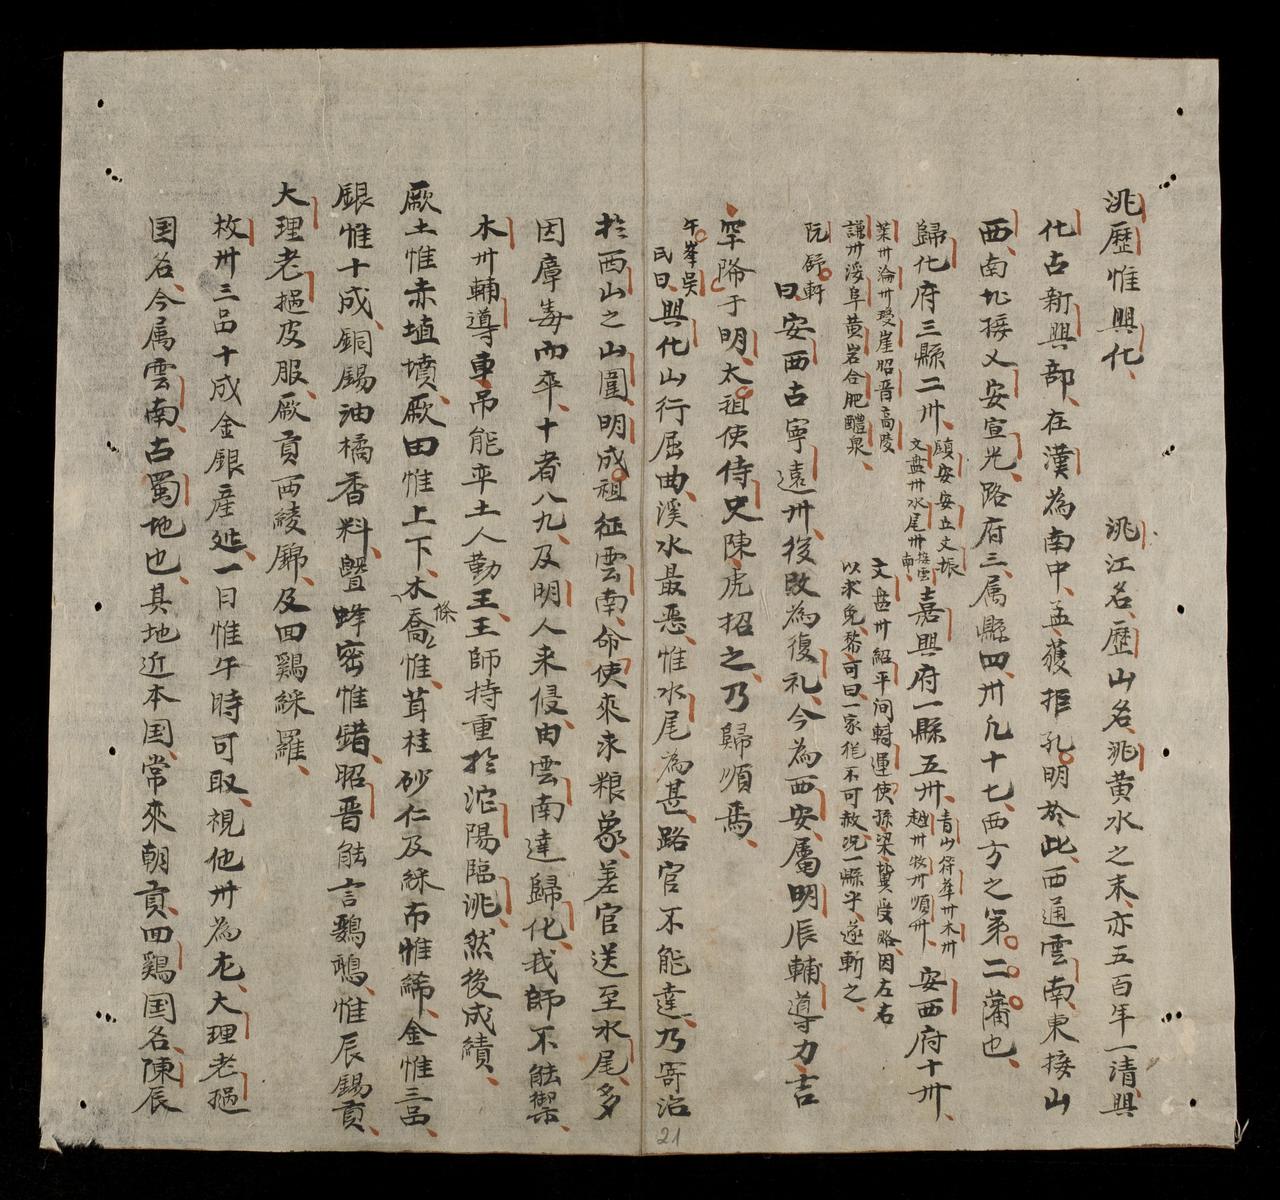 洮歷惟興化、 洮江名、歷山名、洮黃水之末、亦五百年一清、興
化古新興部、在漢為南中、孟獲拒孔明於此、西通雲南、東接山
西、南北接乂安宣光、路府三、属縣四、卅凢十七、西方之第二藩也、
歸化府三縣二卅、
鎮安安立文振
文盤卅水尾卅接雲南、
嘉興府一縣五卅、
青山符華卅木卅
越卅牧卅順卅、
安西府十卅、
萊卅淪卅瓊崖昭晋高陵
謙卅淣阜黄岩合肥醴泉、
文盤卅紹平间轉運使孫梁冀受賂、因左右
以求免、黎可曰、一家犹不可赦、况一縣乎、遂斬之、
阮舒軒
曰、安西古寧遠卅、後改為復礼、今為西安、屬明辰輔導刀吉
罕降于明、太祖使侍史陳虎招之、乃歸順焉、
午峯吳
民曰、興化山行屈曲、溪水最恶、惟水尾為甚、路官不能達、乃寄治
於西山之山圍、明成祖征雲南、命使來求粮象、差官送至水尾、多
因瘴毒而卒、十者八九、及明人来侵、由雲南達歸化、我師不能禦、
木卅輔導車吊能率土人勤王、王師持重於沱陽臨洮、然後成績、
厥土惟赤埴墳、厥田惟上下、木條喬惟、茸桂砂仁及綵布惟絺、金惟三品、
銀惟十成、銅錫油橘香料、曁蜂密惟錯、昭晋能言鸚鵡、惟辰錫貢、
大理老撾皮服、厥貢西綾錦、及回鷄綵羅、
枚卅三品十成金銀産延、一日惟午時可取、視他卅為尤、大理老撾
国名、今属雲南、古蜀地也、其地近本国、常來朝貢、回鷄国名、陳辰
21